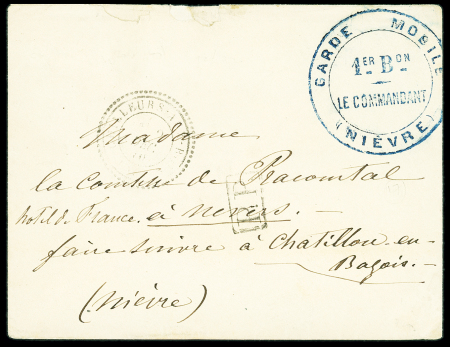 GARDE MOBILE
1ER BON
LE COMMANDANT
(NIÈVRE)
Madame
la Comtesse de Bracomtal
hotel de France à Nevers. —
faire suivre à Chatillon-en-
Bazois. —
(Nièvre)